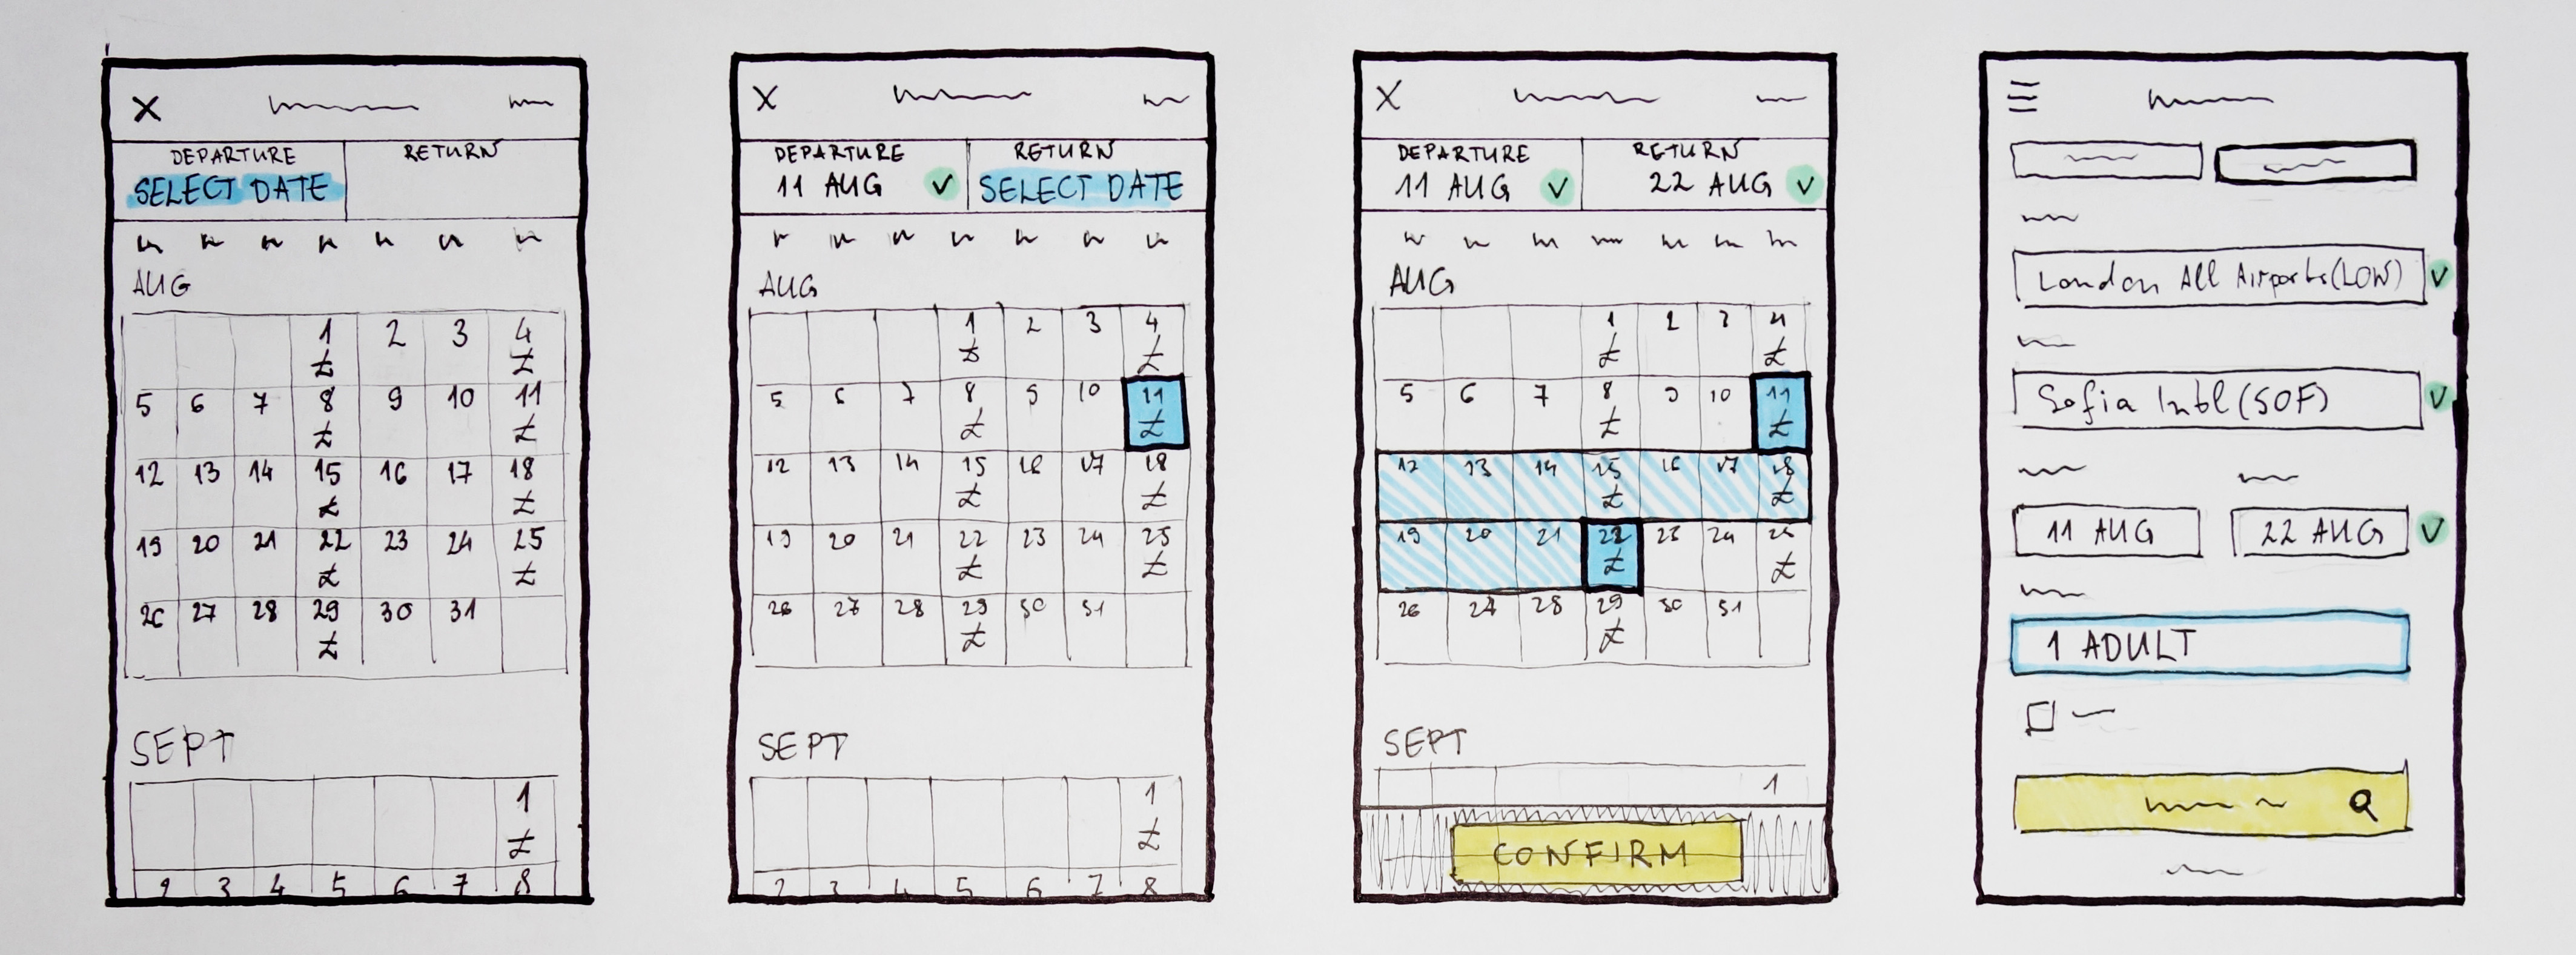 X
DEPARTURE RETURN
SELECT DATE
AUG
1 2 3 4
£ £
5 6 7 8 9 10 11
£ £
12 13 14 15 16 17 18
£ £
19 20 21 22 23 24 25
£ £
26 27 28 29 30 31
£
SEPT
1
£
2 3 4 5 6 7 8
X
DEPARTURE RETURN
11 AUG SELECT DATE
AUG
1 2 3 4
£ £
5 6 7 8 9 10 11
£ £
12 13 14 15 16 17 18
£ £
19 20 21 22 23 24 25
£ £
26 27 28 29 30 31
£
SEPT
1
£
2 3 4 5 6 7 8
X
DEPARTURE RETURN
11 AUG 22 AUG
AUG
1 2 3 4
£ £
5 6 7 8 9 10 11
£ £
12 13 14 15 16 17 18
£ £
19 20 21 22 23 24 25
£ £
26 27 28 29 30 31
£
SEPT
1
CONFIRM
London All Airports (LOW)
Sofia Intl (SOF)
11 AUG 22 AUG
1 ADULT